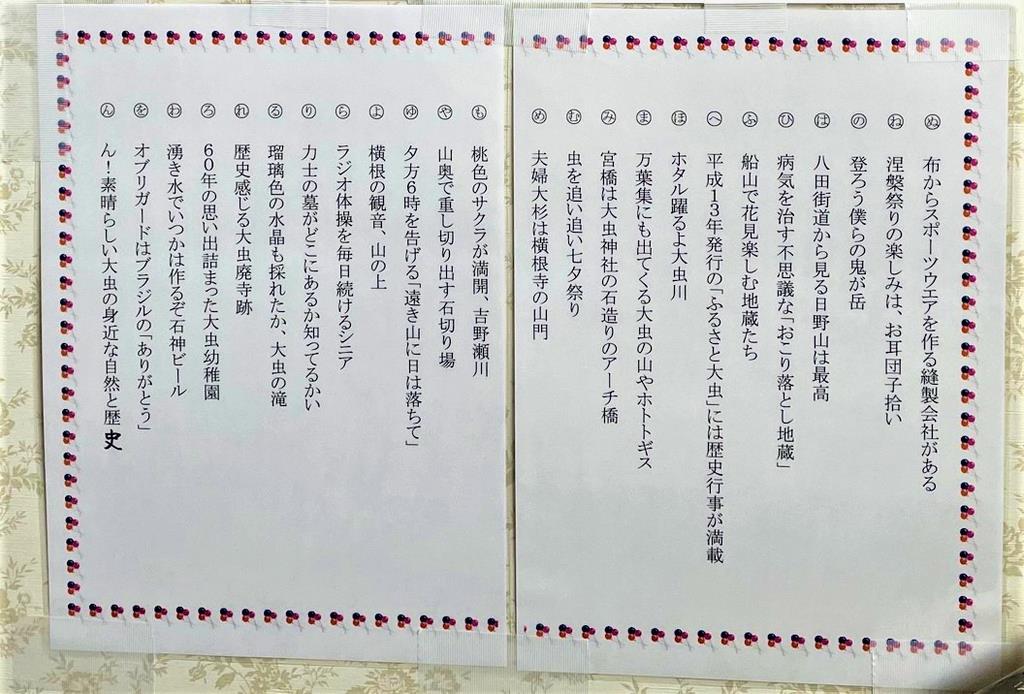 ぬ 布からスポーツウエアを作る縫製会社がある
ね 涅槃祭りの楽しみは、お耳団子拾い
の 登ろう僕らの鬼が岳
は 八田街道から見る日野山は最高
ひ 病気を治す不思議な「おこり落とし地蔵」
ふ 船山で花見楽しむ地蔵たち
へ 平成13年発行の「ふるさと大虫」には歴史行事が満載
ほ ホタル躍るよ大虫川
ま 万葉集にも出てくる大虫の山やホトトギス
み 宮橋は大虫神社の石造りのアーチ橋
む 虫を追い追い七夕祭り
め 夫婦大杉は横根寺の山門
も 桃色のサクラが満開、吉野瀬川
や 山奥で重し切り出す石切り場
ゆ 夕方6時を告げる「遠き山に日は落ちて」
よ 横根の観音、山の上
ら ラジオ体操を毎日続けるシニア
り 力士の墓がどこにあるか知ってるかい
る 瑠璃色の水晶も採れたか、大虫の滝
れ 歴史感じる大虫廃寺跡
ろ 60年の思い出詰まった大虫幼稚園
わ 湧き水でいつかは作るぞ石神ビール
を オブリガードはブラジルの「ありがとう」
ん ん!素晴らしい大虫の身近な自然と歴史